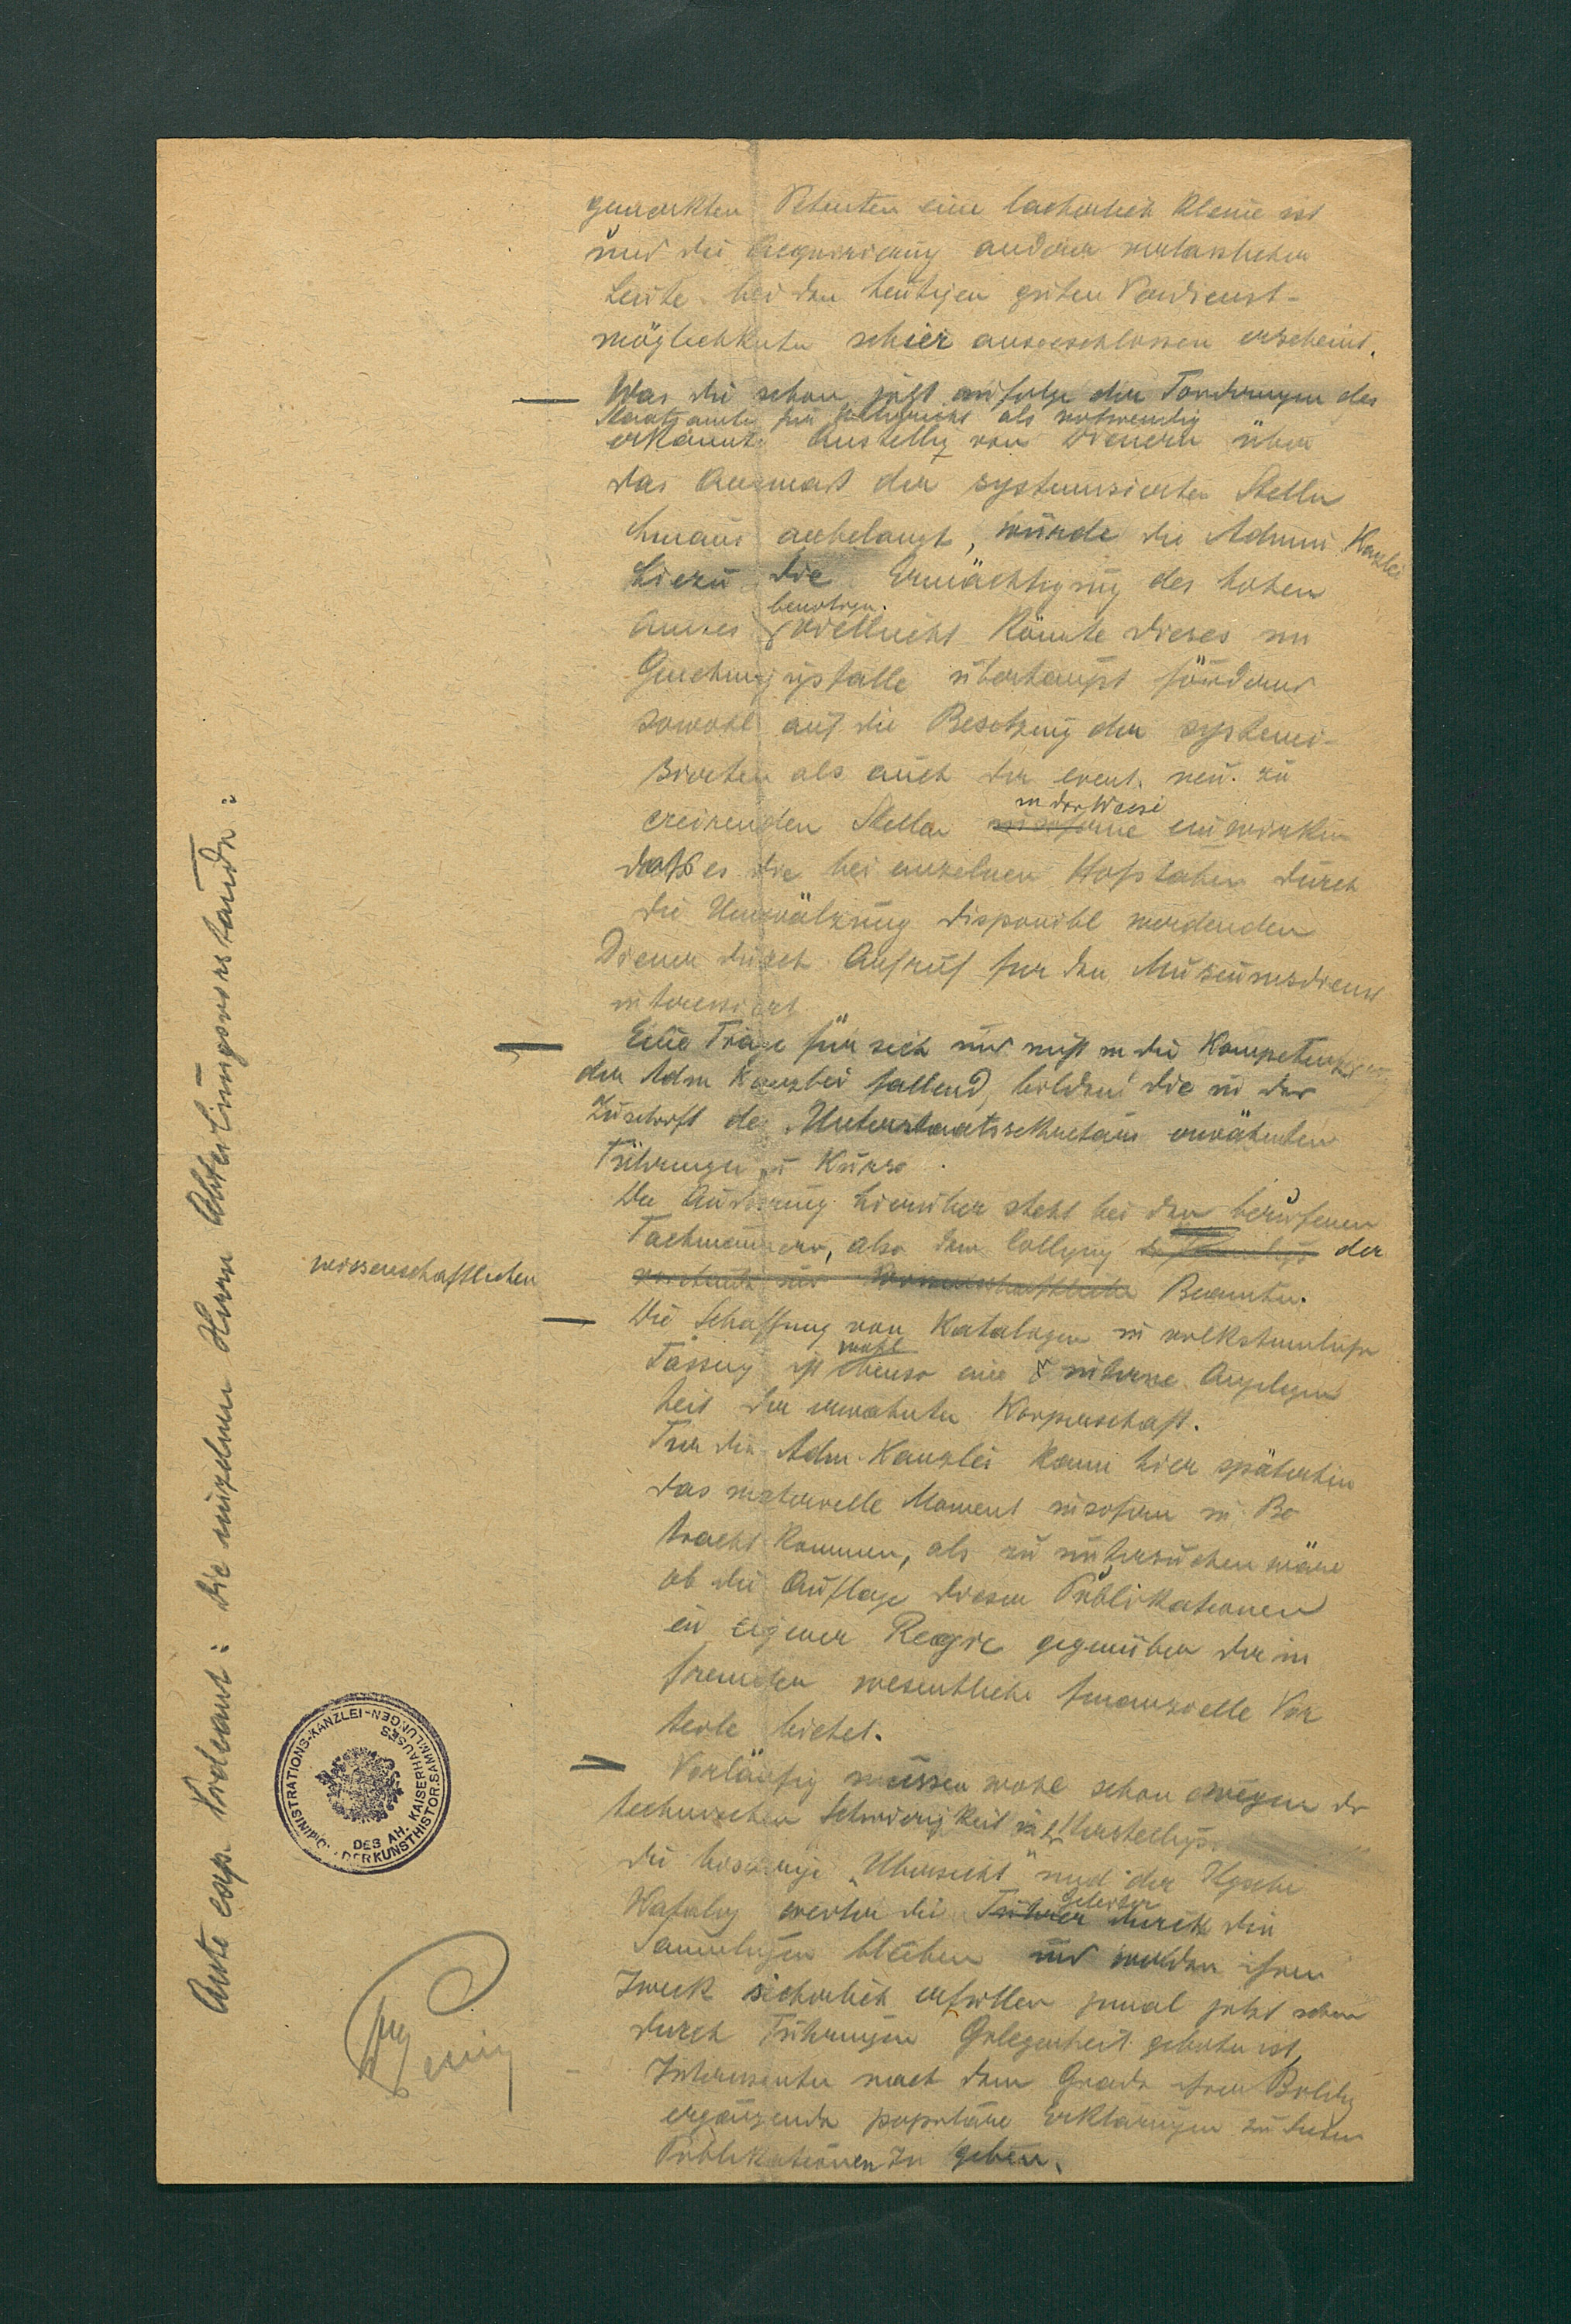 gemerkten Petenten eine lächerlich kleine ist
und die Acquirierung anderer verlasslicher
Leute bei den heutigen guten Verdienst-
möglichkeiten schier ausgeschlossen erscheint.
Was die schon jetzt infolge der Forderungen des
Staatsamtes für Unterricht als notwendig
erkannte Anstellg von Dienern über
das Ausmaß der systemisierten Stellen
hinaus anbelangt, würde die Admin. Kanzlei
hiezu die Ermächtigung des hohen
benötigen.
Amtes vielleicht könnte dieses im
Genehmigungsfalle überhaupt fördernd
sowohl auf die Besetzung der systemi-
sierten als auch der event. neu zu
in der Weise
creirenden Stellen insoferne einwirken
daß es die bei einzelnen Hofstaben durch
die Umwälzung disponibl werdenden
Diener durch Aufruf für den Museumsdienst
interessiert
Eine Frage für sich und nicht in die Kompetenz
der Adm Kanzlei fallend, bilden die in der
Zuschrift des Unterstaatssekretärs erwähnten
Führungen u Kurse.
Die Äußerung hierüber steht bei den berufenen
Fachmännern, also dem Collegium der
wissenschaftlichen
wissenschaftliche Beamten.
Die Schaffung von Katalogen in volkstümlicher
wohl
Fassung ist ebenso eine interne Angelegen
heit der erwähnten Körperschaft.
Für die Adm. Kanzlei kann hier späterhin
das materielle Moment insofern in Be
tracht kommen, als zu untersuchen wäre
ob die Auflage dieser Publikationen
in eigener Regie gegenüber der in
fremder wesentliche finanzielle Vor
teile bietet.
Vorläufig müssen wohl schon wegen der
technischen Schwierigkeit in Herstellg
die bisherige "Übersicht" und der Ilgsche
Geleiter
Katalog weiter die Führer durch die
Sammlungen bleiben und werden ihren
Zweck sicherlich erfüllen zumal jetzt schon
durch Führungen Gelegenheit geboten ist,
Interessenten nach dem Grade ihrer Bildg
ergänzende populäre Erklärungen zu diesen
Publikationen zu geben.
Ante exp. Videant: die einzelnen Herren Abteilungsvorstände:
ADMINISTRATIONS-KANZLEI
DER KUNSTHISTOR. SAMMLUNGEN
DES AH. KAISERHAUSES